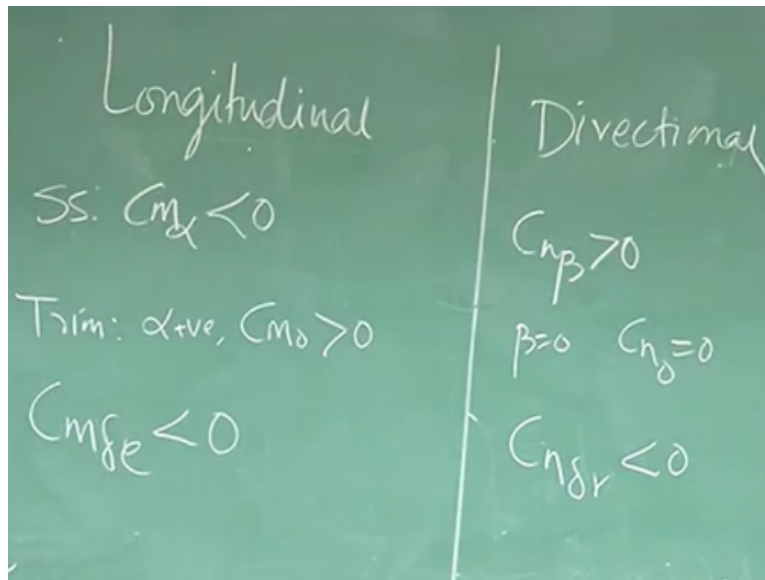 Longitudinal
SS: Cmα<0
Trim: α+ve, Cm₀>0
Cmδe<0
Directional
Cnβ>0
β=0 Cn₀=0
Cnδr<0